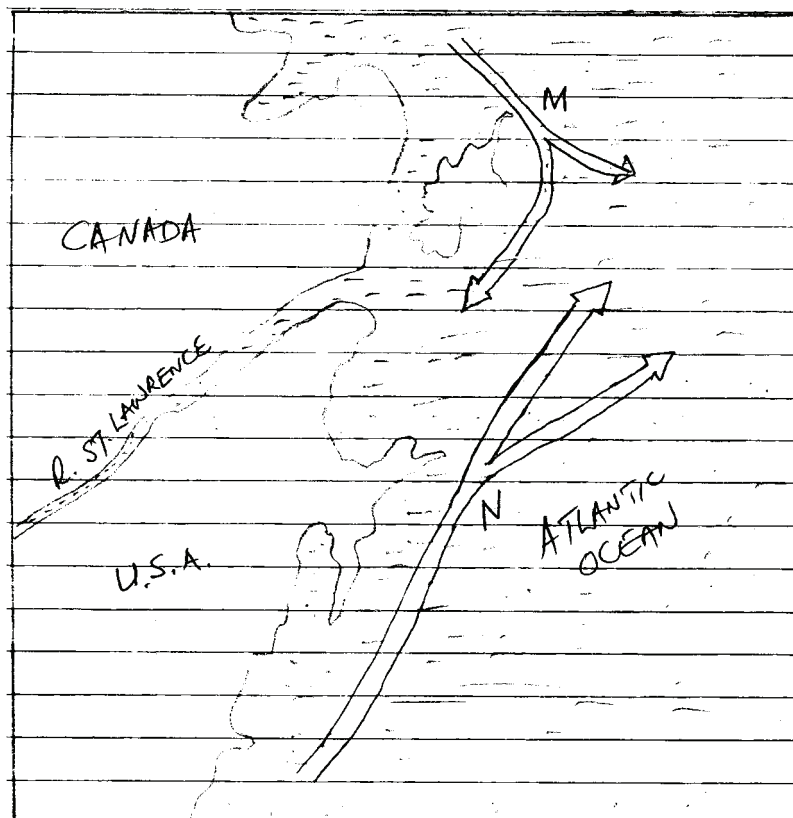 M
CANADA
R. ST. LAWRENCE
N
ATLANTIC
OCEAN
U.S.A.